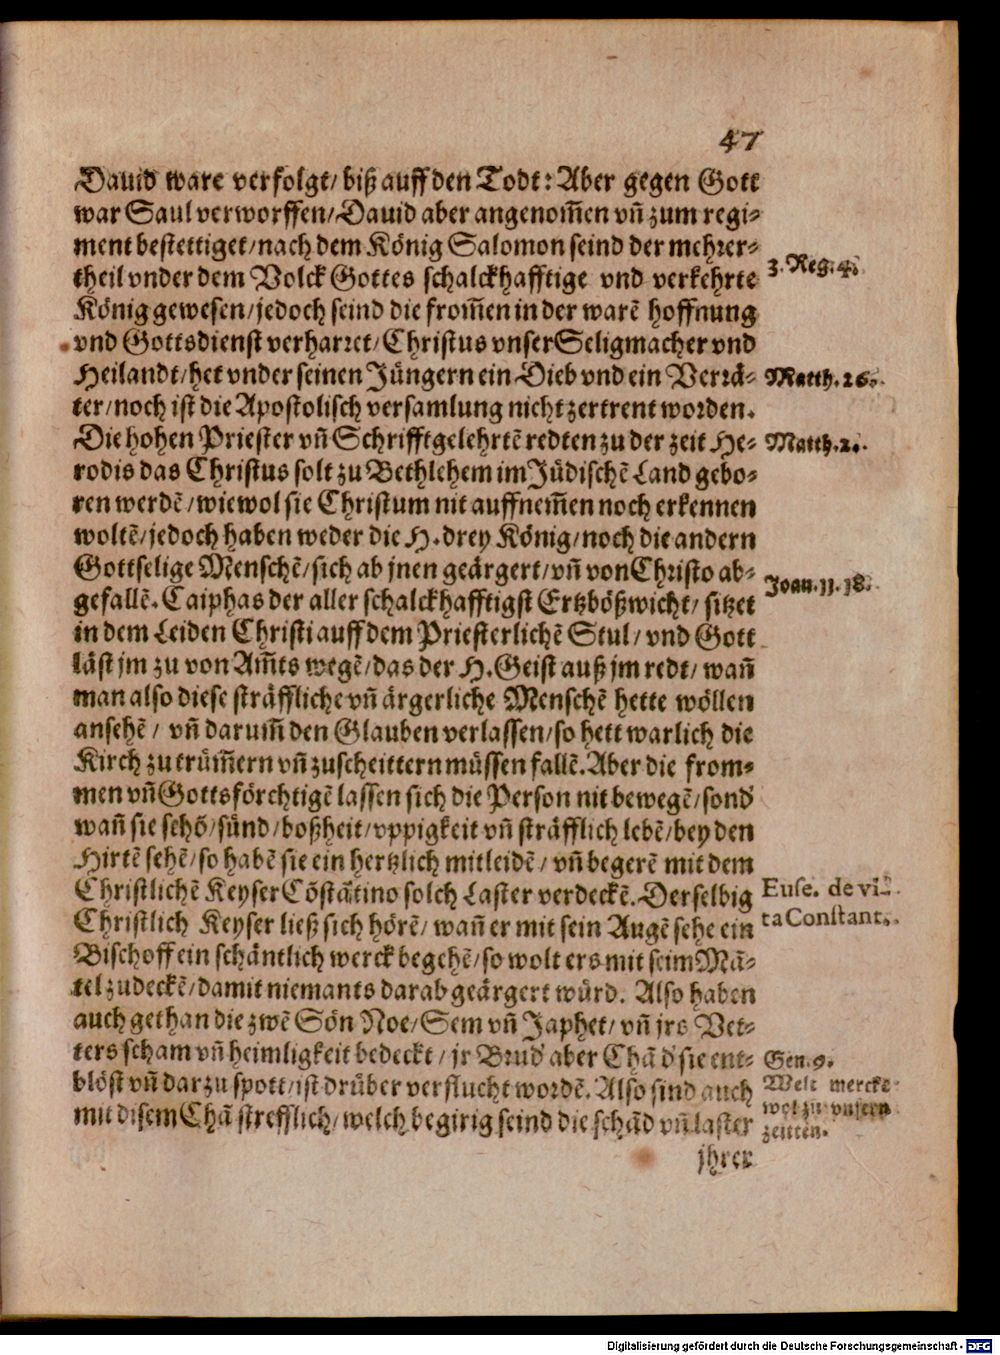 47
Dauid ware verfolgt/ biß auff den Todt: Aber gegen Gott
war Saul verworffen/ Dauid aber angenom̃en vñ zum regi-
ment bestettiget/ nach dem König Salomon seind der mehrer-
theil vnder dem Volck Gottes schalckhafftige vnd verkehrte
3. Reg. 4.
König gewesen/ jedoch seind die from̃en in der warẽ hoffnung
vnd Gottsdienst verharret/ Christus vnser Seligmacher vnd
Heilandt/ het vnder seinen Jüngern ein Dieb vnd ein Verrä-
Matth. 26.
ter/ noch ist die Apostolisch versamlung nicht zertrent worden.
Die hohen Priester vñ Schrifftgelehrtẽ redten zu der zeit He-
Matth. 2.
rodis das Christus solt zu Bethlehem im Jüdischẽ Land gebo-
ren werdẽ/ wiewol sie Christum nit auffnem̃en noch erkennen
woltẽ/ jedoch haben weder die H. drey König/ noch die andern
Gottselige Menschẽ/ sich ab jnen geärgert/ vñ von Christo ab-
Joan. 11. 18.
gefallẽ. Caiphas der aller schalckhafftigst Ertzbößwicht/ sitzet
in dem Leiden Christi auff dem Priesterlichẽ Stul/ vnd Gott
läst jm zu von Am̃ts wegẽ/ das der H. Geist auß jm redt/ wañ
man also diese sträffliche vñ ärgerliche Menschẽ hette wöllen
ansehẽ/ vñ darum̃ den Glauben verlassen/ so hett warlich die
Kirch zu trüm̃ern vñ zuscheittern müssen fallẽ. Aber die from-
men vñ Gottsförchtigẽ lassen sich die Person nit bewegẽ/ sond̕
wañ sie sehõ/ sünd/ boßheit/ vppigkeit vñ sträfflich lebẽ/ bey den
Hirtẽ sehẽ/ so habẽ sie ein hertzlich mitleidẽ/ vñ begerẽ mit dem
Christlichẽ Keyser Cõstãtino solch Laster verdeckẽ. Derselbig
Euse. de vi-
Christlich Keyser ließ sich hörẽ/ wañ er mit sein Augẽ sehe ein
ta Constant.
Bischoff ein schäntlich werck begehẽ/ so wolt ers mit seim Mã-
tel zudeckẽ/ damit niemants darab geärgert würd. Also haben
auch gethan die zwẽ Sön Noe/ Sem vñ Japhet/ vñ jrs Vet-
ters scham vñ heimligkeit bedeckt/ jr Brud̕ aber Chã d̕ sie ent-
Gen. 9.
blöst vñ darzu spott/ ist drüber verflucht wordẽ. Also sind auch
Welt mercke
mit disem Chã strefflich/ welch begirig seind die schãd vñ laster
wol zu vnsern
zeitten.
jhrer
Digitalisierung gefördert durch die Deutsche Forschungsgemeinschaft - DFG